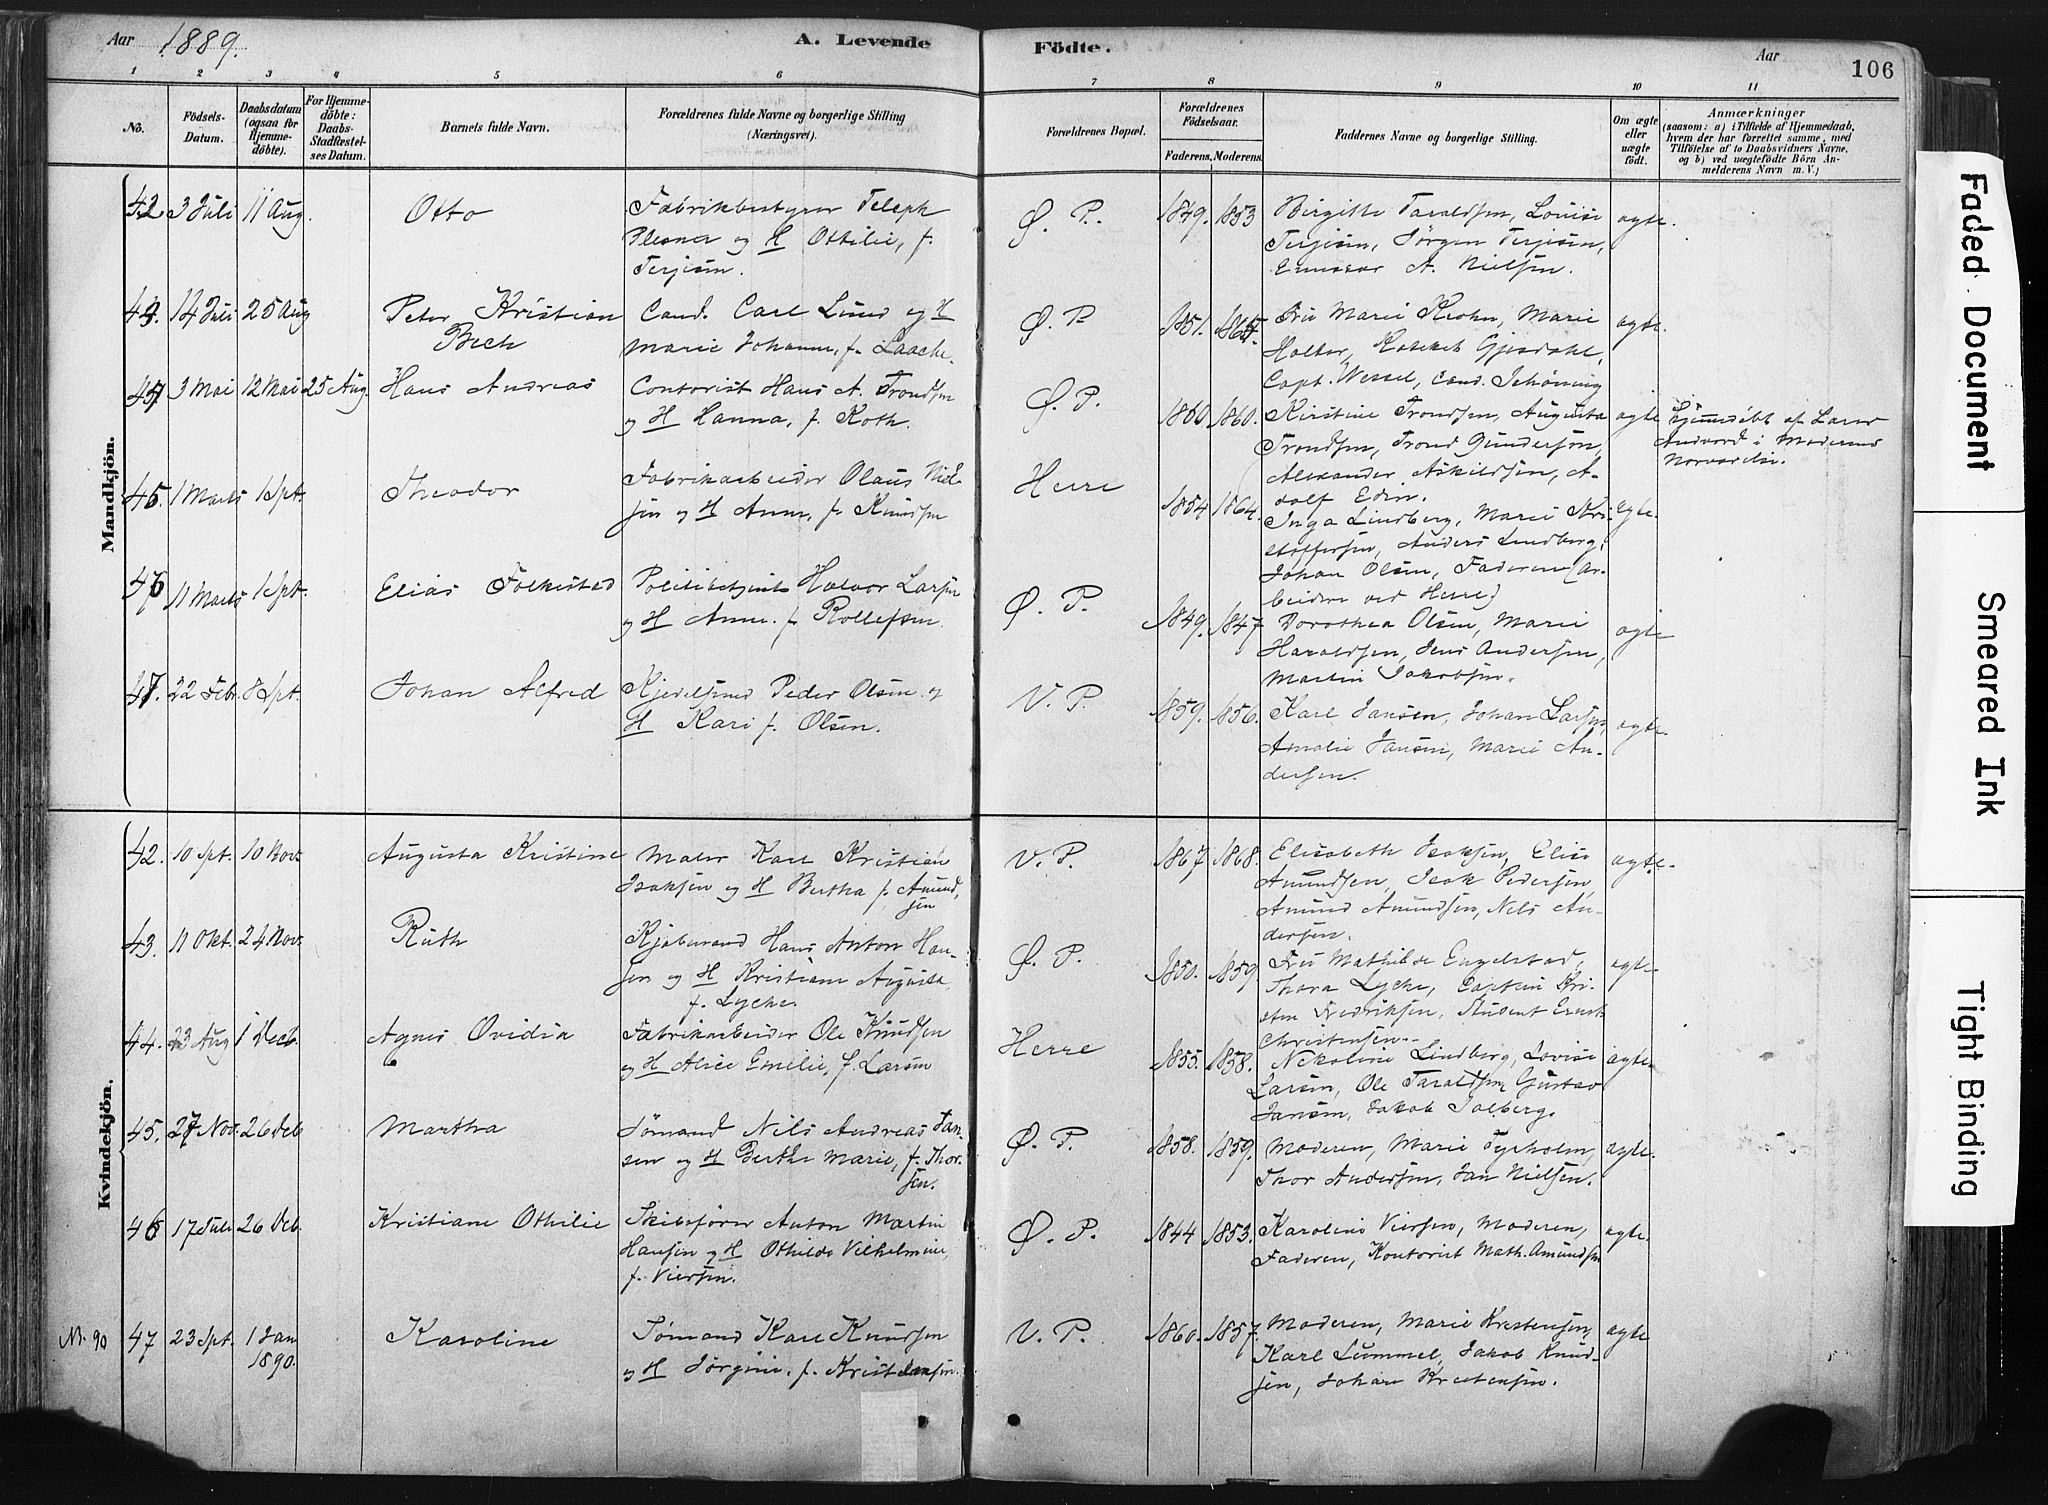 Aar 1889.
A. Levende Födte.
Aar
106
1 2 3 4 5 6 7 8 9 10 11
No.
Födsels-
Datum.
Daabsdatum
(ogsaa for
Hjemme-
döbte).
For Hjemme-
döbte:
Daabs-
Stadfæstel-
ses Datum.
Barnets fulde Navn.
Forældrenes fulde Navne og borgerlige Stilling
(Næringsvei).
Forældrenes Bopæl.
Forældrenes
Födselsaar.
Faderens.
Moderens.
Faddernes Navne og borgerlige Stilling.
Om ægte
eller
uægte
födt.
Anmærkninger
(saasom: a) i Tilfælde af Hjemmedaab,
hvem der har forrettet samme, med
Tilföielse af to Daabsvidners Navne,
og b) ved uægtefödte Börn An-
melderens Navn m. V.)
Mandkjön.
42 3 Juli 11 Aug. Otto
Fabrikbestyrer Teleph
Plesner og H Ottilie, f.
Terjesen.
Ø. P. 1849. 1853
Birgitte Taraldsen, Louise
Terjesen, Jörgen Terjesen,
A. Nielsen.
ægte.
43. 14 Juli 25 Aug Peter Kristian
Bech
Cand. Carl Lund og H
Marie Johanne, f. Laache.
Ø. P. 1851.
Fru Marie Krohn, Marie
Holter, Gjesdahl,
Capt. Wessel, cand. Schöning
ægte.
3 Mai 12 Mai 25 Aug. Hans Andreas
Contorist Hans A. Trondsen
og H Hanna, f. Roth.
Ø. P. 1860 1860.
Kirstine Trondsen, Augusta
Trondsen, Trond Gundersen,
Alexander Askildsen, A-
dolf Edin.
ægte
Hjemmedöbt af Larer
Andvord i Moderens
Nærværelse.
45. 1 Marts 1 Spt. Theodor
Fabrikarbeider Olaus Niel-
sen og H Anne, f. Knudsen
Herre 1854 1864.
Inga Lindberg, Marie Kri-
stoffersen, Anders Lindberg,
Johan Olsen, Faderen (ar-
beidere ved Herre)
ægte.
46 11 Marts 1 Spt. Elias Folkestad
Politibetjent Halvor Larsen
og H Anne f. Rollefsen.
Ø. P. 1849. 1847
Dorothea Olsen, Marie
Haraldsen, Jens Andersen,
Martin Jakobsen.
ægte
47. 22 Febr. 8 Spt. Johan Alfred
Kjedelsmed Peder Olsen og
H Kari f. Olsen.
V. P. 1859. 1856.
Karl Jansen, Johan Larsen,
Amalie Jansen, Marie An-
dersen.
ægte.
Kvindekjön.
42. 10 Spt. 10 Nov. Augusta Kristine
Maler Karl Kristian
Isaksen og H Bertha f. Amund-
sen
V. P. 1867 1868.
Elisabeth Isaksen, Elise
Amundsen, Isak Pedersen,
Amund Amundsen, Nils An-
dersen.
ægte.
43. 11 Okt. 24 Nov. Ruth
Kjöbmand Hans Anton Han-
sen og H Kristiane Augusta
f. Lycke.
Ø. P. 1850. 1859.
Fru Mathilde Engelstad,
Thora Lycke, Captein Kri-
sten Fredriksen, Student Ernst
Christensen.
ægte
44. 23 Aug 1 Decb. Agnes Ovidia
Fabrikarbeider Ole Knudsen
og H Alice Emelie, f. Larsen
Herre 1855. 1858.
Nikoline Lindberg, Lovise
Larsen, Ole Taraldsen, Gustav
Jansen, Jakob Solberg.
ægte.
45. 27 Nov. 26 Deb Martha
Sömand Nils Andreas Jan-
sen og H Berthe Marie, f. Thor-
sen.
Ø. P. 1858. 1859.
Moderen, Marie Tyrholm,
Thor Andersen, Jan Nielsen.
ægte.
46 17 Juli 26 Deb. Kristiane Othilie
Skibsförer Anton Martin
Hansen og H Othilde Vilhelmine,
f. Viersen.
Ø. P. 1844 1853.
Karoline Viersen, Moderen,
Faderen, Kontorist Math. Amundsen
ægte.
Nr. 90 47 23 Spt. 1 Jan
1890. Karoline
Sömand Karl Knudsen
og H Jörgine, f. Kristensen.
V. P. 1860. 1857.
Moderen, Marie Kristensen,
Karl Lummel, Jakob Knud-
sen, Johan Kristensen.
ægte
Faded Document
Smeared Ink
Tight Binding